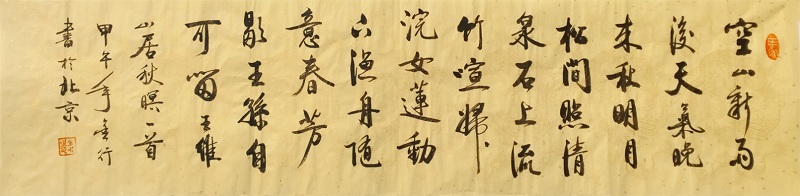 空山新雨
後天氣晚
来秋明月
松間照清
泉石上流
竹喧歸
浣女蓮動
下漁舟随
意春芳
歇王孫自
可留 王維
山居秋暝一首
甲午年金行
書於北京